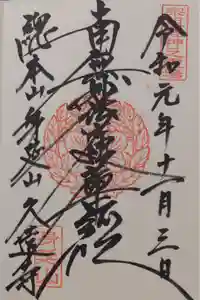 令和元年十一月三日
南無妙法蓮華経
総本山身延山久遠寺